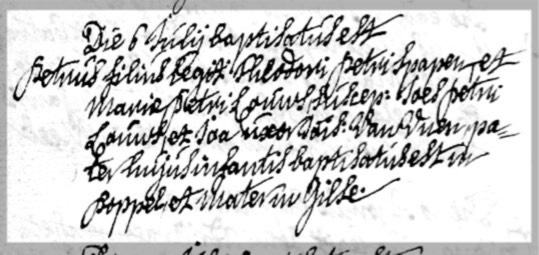 Die 6 Julij baptisatus est
Petrus filius legit: Theodori Petri Spapen, et
Marie Petri Louws Suscep: Joës Petri
Louws, et Joa uxor Jois: Van Vuen, pa=
ter hujus infantis baptisatus est in
Poppel, et mater in Gilse.